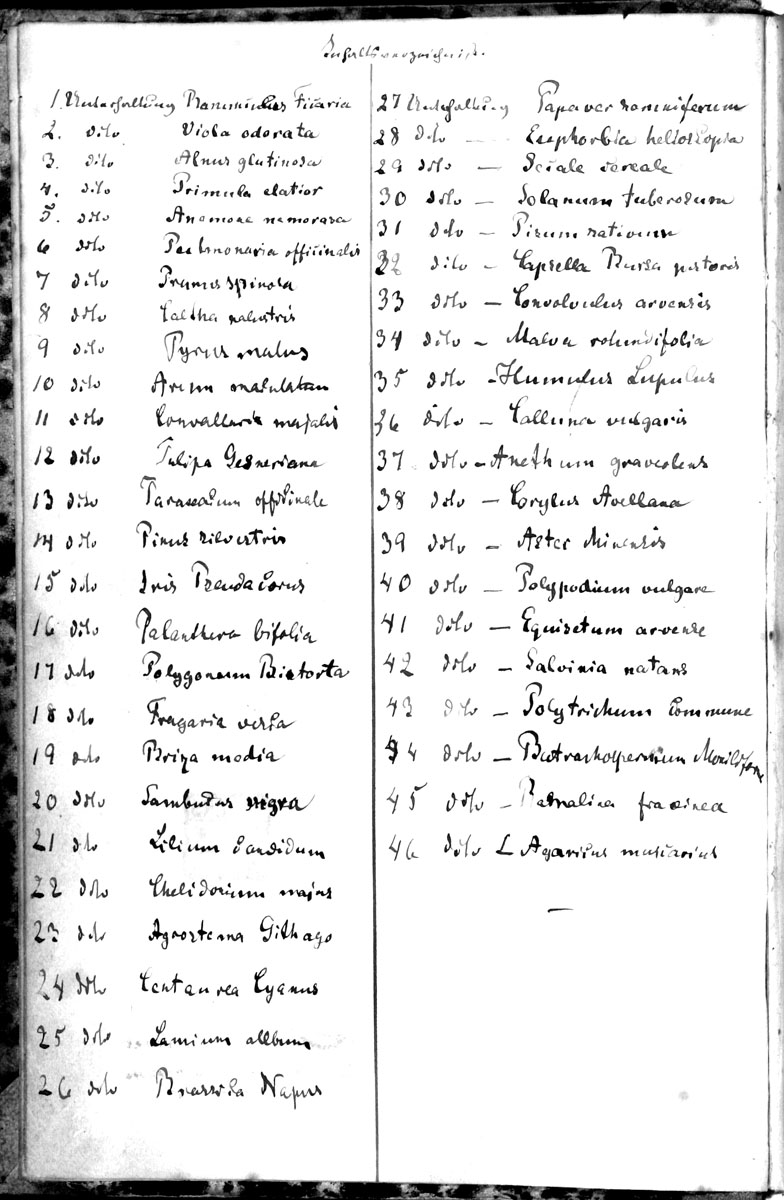 Inhaltsverzeichniß.
1. Unterhaltung Ranunculus Ficaria
2. dito Viola odorata
3. dito Alnus glutinosa
4. dito Primula elatior
5. dito Anemone nemorosa
6 dito Pulmonaria officinalis
7 dito Prunus spinosa
8 dito Caltha palustris
9 dito Pyrus malus
10 dito Arum maculatum
11 dito Convallaria majalis
12 dito Tulipa Gesneriana
13 dito Taraxacum officinale
14 dito Pinus silvestris
15 dito Iris Pseudacorus
16 dito Palanthera bifolia
17 dito Polygonum Bistorta
18 dito Fragaria vesca
19 dito Briza media
20 dito Sambucus nigra
21 dito Lilium candidum
22 dito Chelidonium majus
23 dito Agrostema Githago
24 dito Centaurea Cyanus
25 dito Lamium allbum
26 dito Brassica Napus
27 Unterhaltung Papaver somniferum
28 dito — Euphorbia helioscopia
29 dito — Secale cereale
30 dito — Solanum tuberosum
31 dito — Pisum sativum
32 dito — Capsella Bursa pastoris
33 dito — Convolvulus arvensis
34 dito — Malva rotundifolia
35 dito — Humulus Lupulus
36 dito — Calluna vulgaris
37 dito — Anethum graveolens
38 dito — Corylus Avellana
39 dito — Aster chinensis
40 dito — Polypodium vulgare
41 dito — Equisetum arvense
42 dito — Salvinia natans
43 dito — Polytrichum commune
44 dito — Batrachospermum Moniliforme
45 dito — Ramalina fraxinea
46 dito Agaricus muscarius
—